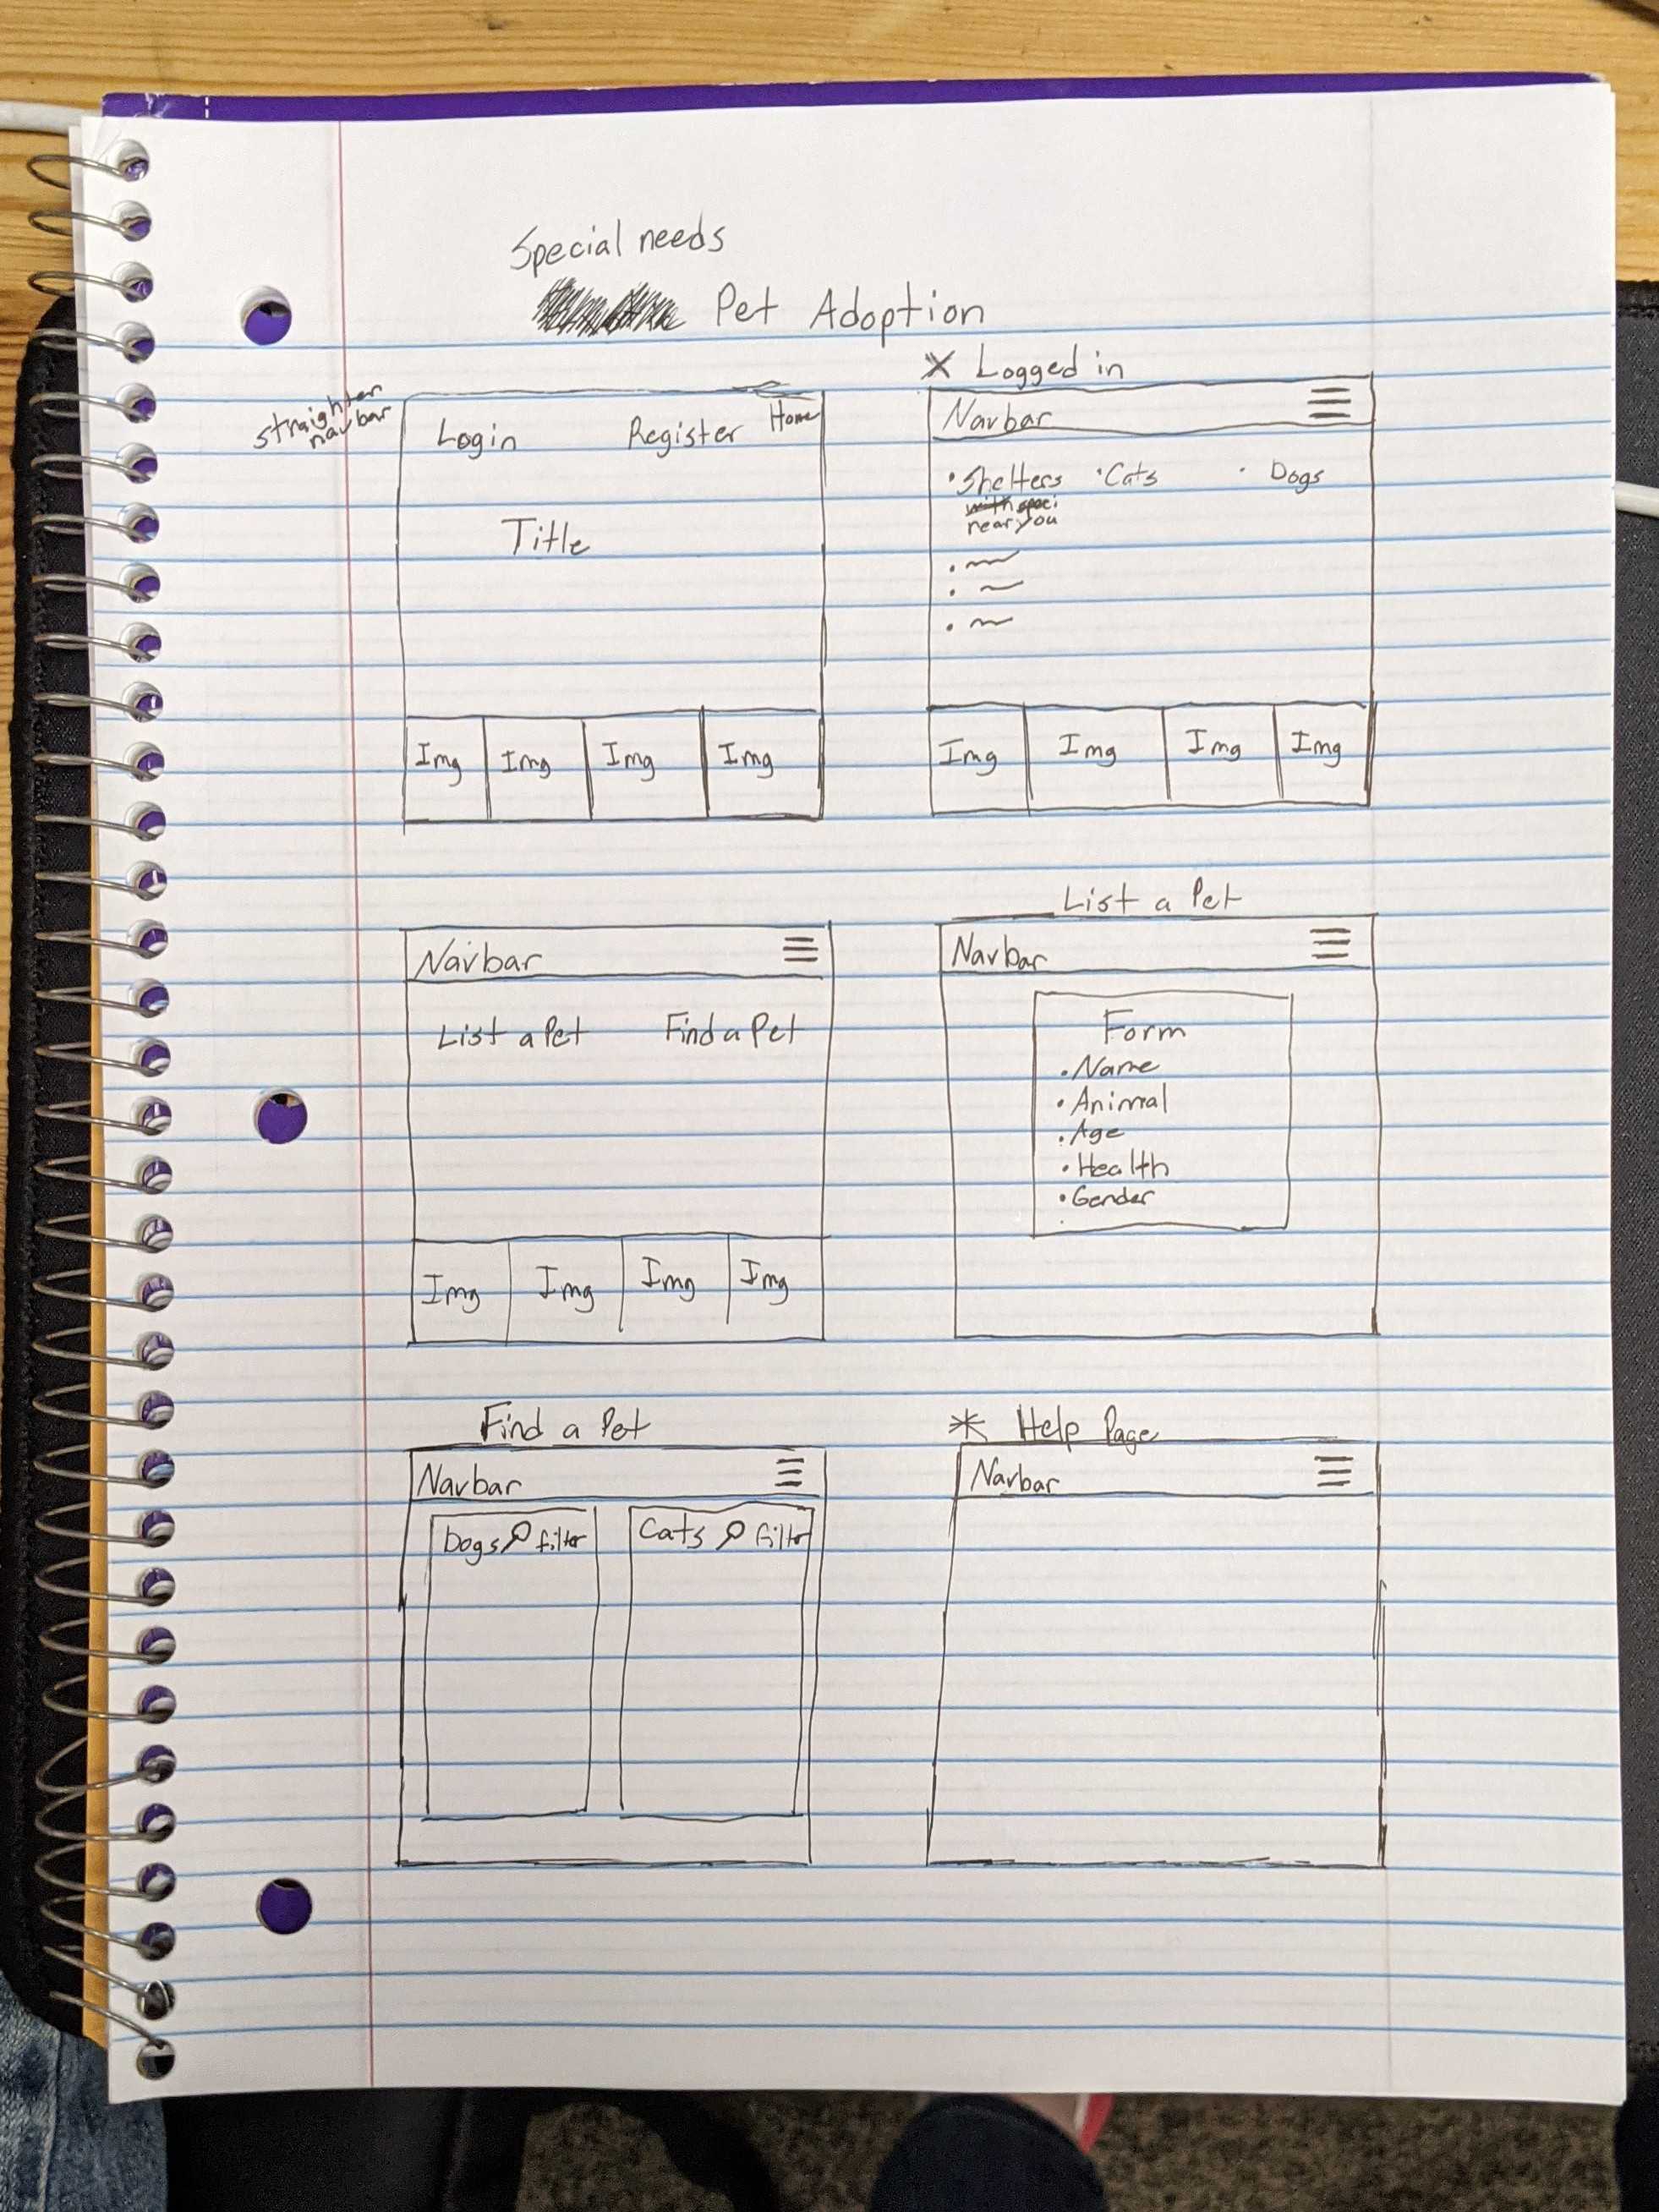 Special needs
Pet Adoption
straighter
navbar
Login Register Home
Title
Img Img Img Img
X Logged in
Navbar
• Shelters • Cats • Dogs
near you
Img Img Img Img
Navbar
List a Pet Find a Pet
Img Img Img Img
List a Pet
Navbar
Form
• Name
• Animal
• Age
• Health
• Gender
Find a Pet
Navbar
Dogs filter Cats filter
* Help Page
Navbar